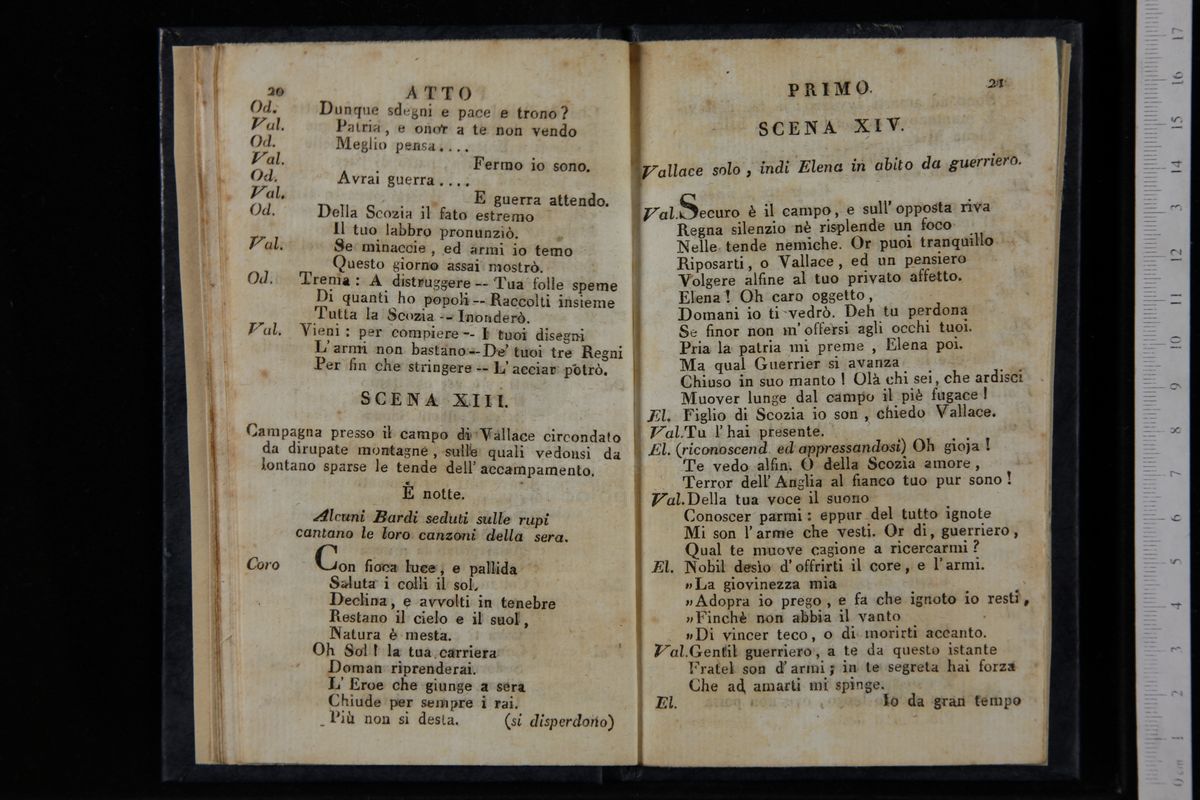 20 ATTO
Od. Dunque sdegni e pace e trono?
Val. Patria, e onor a te non vendo
Od. Meglio pensa....
Val. Fermo io sono.
Od. Avrai guerra....
Val. E guerra attendo.
Od. Della Scozia il fato estremo
Il tuo labbro pronunziò.
Val. Se minaccie, ed armi io temo
Questo giorno assai mostrò.
Od. Trema: A distruggere -- Tua folle speme
Di quanti ho popoli -- Raccolti insieme
Tutta la Scozia -- Inonderò.
Val. Vieni: per compiere -- I tuoi disegni
L'armi non bastano -- De' tuoi tre Regni
Per fin che stringere -- L'acciar potrò.
SCENA XIII.
Campagna presso il campo di Vallace circondato
da dirupate montagne, sulle quali vedonsi da
lontano sparse le tende dell'accampamento.
È notte.
Alcuni Bardi seduti sulle rupi
cantano le loro canzoni della sera.
Coro Con fioca luce, e pallida
Saluta i colli il sol.
Declina, e avvolti in tenebre
Restano il cielo e il suol,
Natura è mesta.
Oh Sol! la tua carriera
Doman riprenderai.
L'Eroe che giunge a sera
Chiude per sempre i rai.
Più non si desta. (si disperdono)
PRIMO. 21
SCENA XIV.
Vallace solo, indi Elena in abito da guerriero.
Val. Securo è il campo, e sull'opposta riva
Regna silenzio nè risplende un foco
Nelle tende nemiche. Or puoi tranquillo
Riposarti, o Vallace, ed un pensiero
Volgere alfine al tuo privato affetto.
Elena! Oh caro oggetto,
Domani io ti vedrò. Deh tu perdona
Se finor non m'offersi agli occhi tuoi.
Pria la patria mi preme, Elena poi.
Ma qual Guerrier si avanza
Chiuso in suo manto! Olà chi sei, che ardisci
Muover lunge dal campo il piè fugace!
El. Figlio di Scozia io son, chiedo Vallace.
Val. Tu l'hai presente.
El. (riconoscend. ed appressandosi) Oh gioja!
Te vedo alfin. O della Scozia amore,
Terror dell'Anglia al fianco tuo pur sono!
Val. Della tua voce il suono
Conoscer parmi: eppur del tutto ignote
Mi son l'arme che vesti. Or di, guerriero,
Qual te muove cagione a ricercarmi?
El. Nobil desìo d'offrirti il core, e l'armi.
"La giovinezza mia
"Adopra io prego, e fa che ignoto io resti,
"Finchè non abbia il vanto
"Di vincer teco, o di morirti accanto.
Val. Gentil guerriero, a te da questo istante
Fratel son d'armi; in te segreta hai forza
Che ad amarti mi spinge.
El. Io da gran tempo
0 cm 1 2 3 4 5 6 7 8 9 10 11 12 13 14 15 16 17